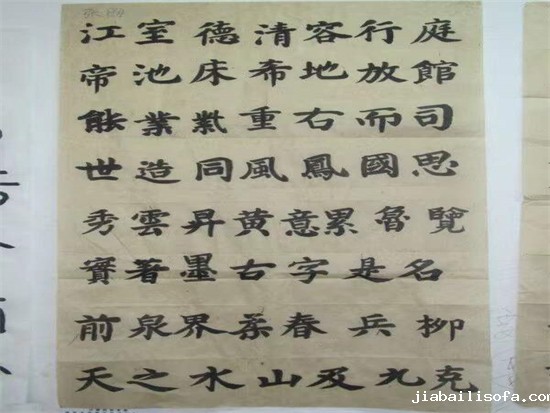 江室德清容行庭
帝池床布地放館
能業氣重右而司
世造同風鳳國思
秀雲昇黃意累魯覽
著墨古字是名
前泉界春兵柳
天之水山及九克
jiabailisofa.com